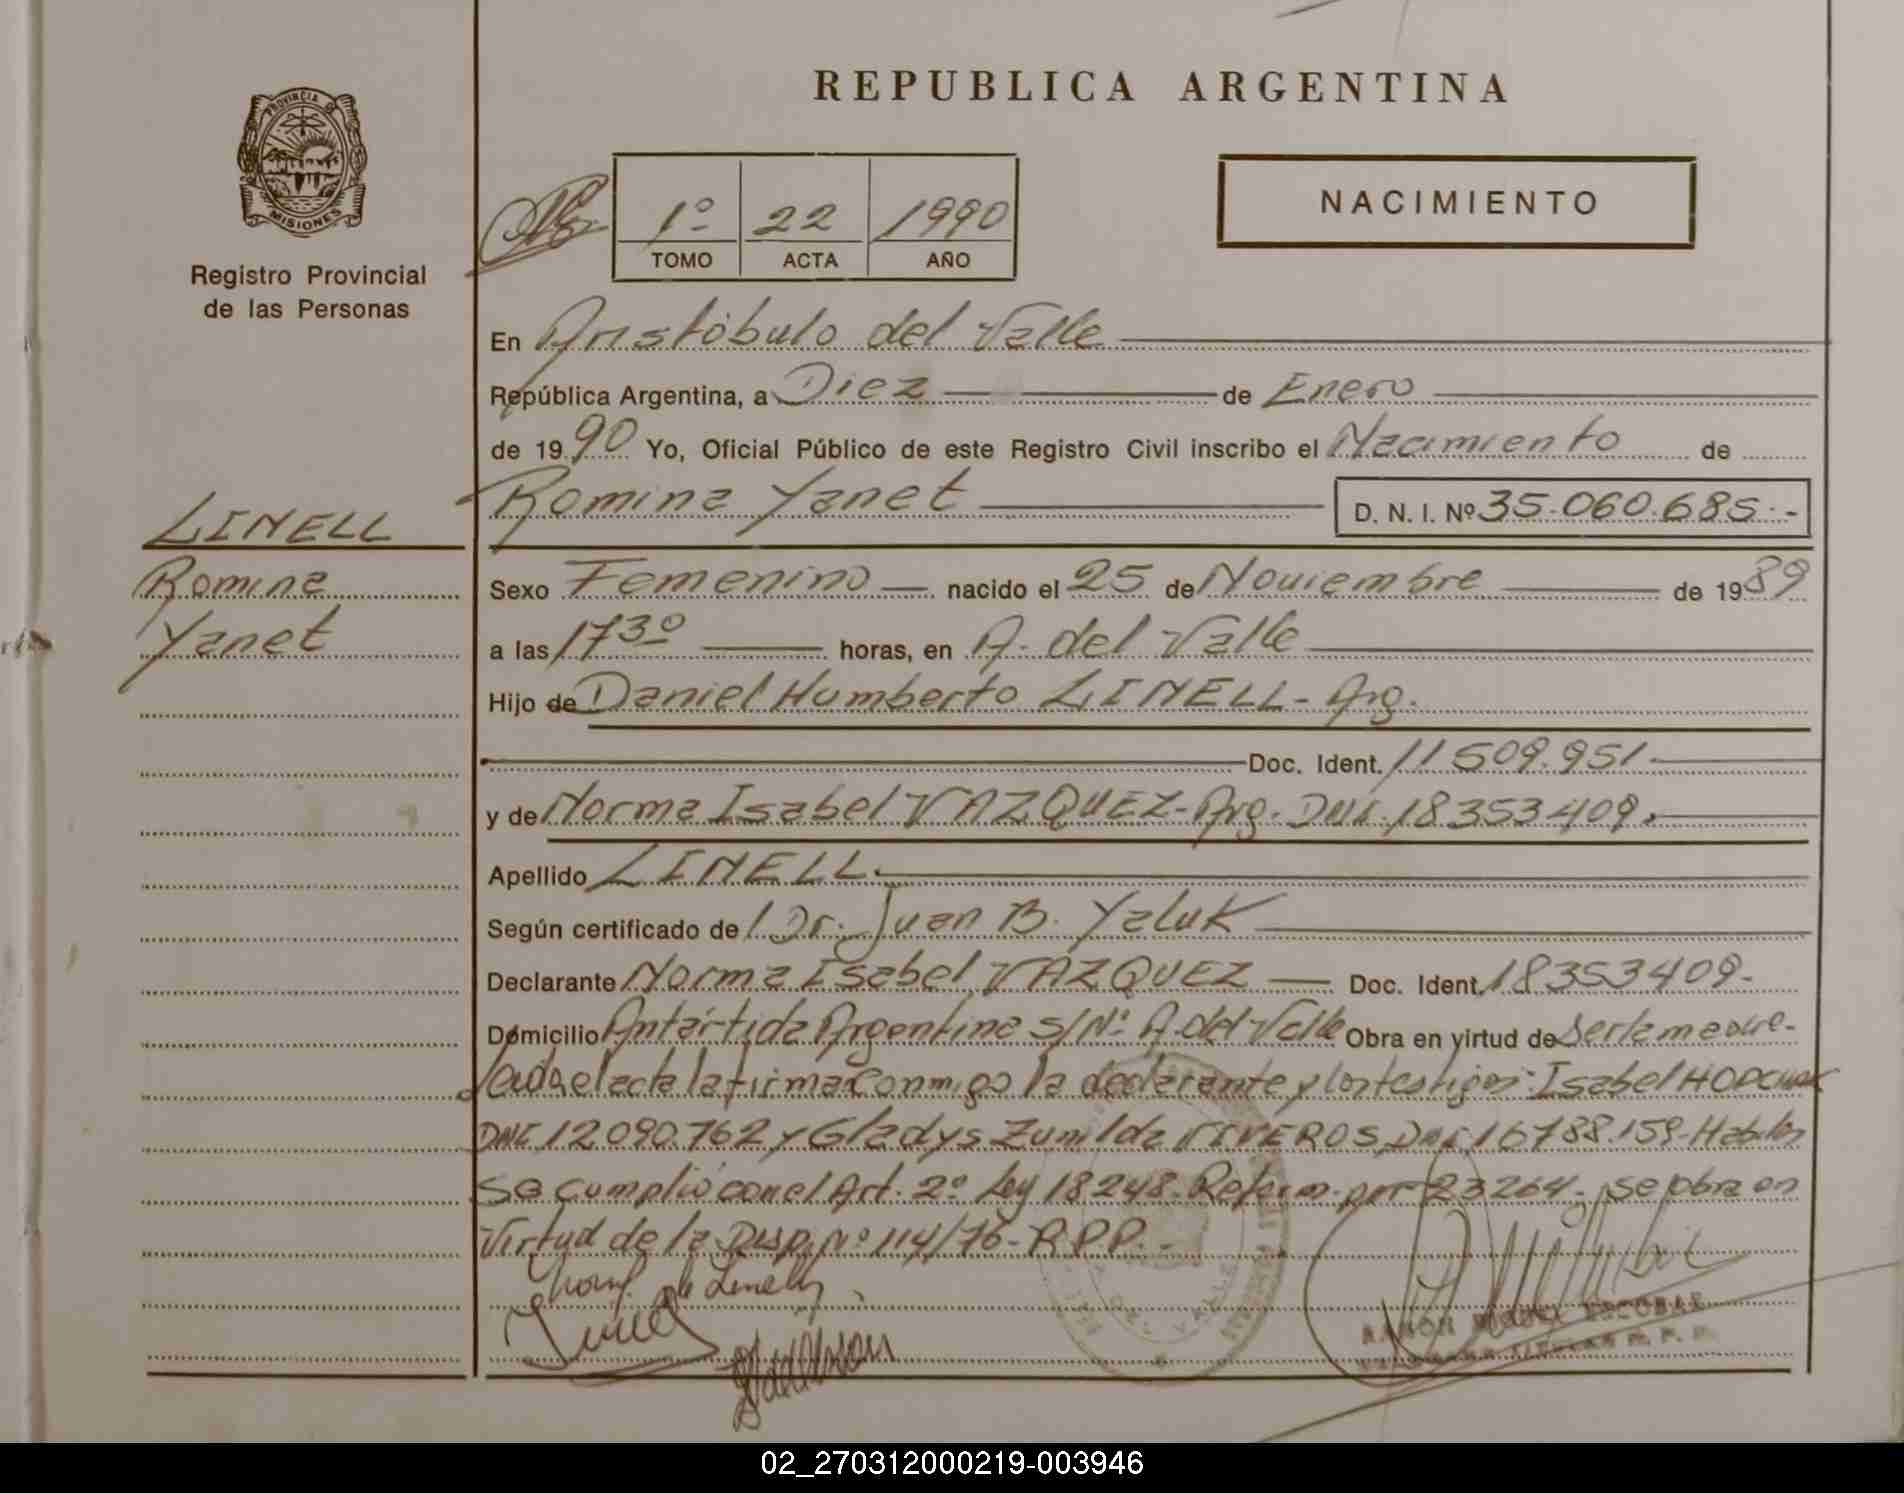 REPUBLICA ARGENTINA
PROVINCIA DE
MISIONES
Registro Provincial
de las Personas
1º 22 1990
TOMO ACTA AÑO
NACIMIENTO
En Aristóbulo del Valle
República Argentina, a Diez de Enero
de 1990 Yo, Oficial Público de este Registro Civil inscribo el Nacimiento de
Romina Yanet D. N. I. Nº 35.060.685.-
LINELL
Romina
Yanet
Sexo Femenino nacido el 25 de Noviembre de 1989
a las 17³⁰ horas, en A. del Valle
Hijo de Daniel Humberto LINELL - Arg.
Doc. Ident. 11509.951
y de Norma Isabel VAZQUEZ - Arg. DNI. 18353409.
Apellido LINELL
Según certificado de Dr. Juan B. Yaluk
Declarante Norma Isabel VAZQUEZ Doc. Ident. 18353409.
Domicilio Antártida Argentina S/Nº A. del Valle Obra en virtud de ser la madre.
Leida el acta la firman conmigo la declarante y los testigos: Isabel
DNI 12.090.762 y Gladys Zunilda VIVEROS DNI. 16788.159 - Habiles
se cumplió con el Art. 2º Ley 18248. Reform. por 23264. se obra en
virtud de la Disp. Nº 114/76 - R.P.P.
RAMON ESCOBAR
02_270312000219-003946